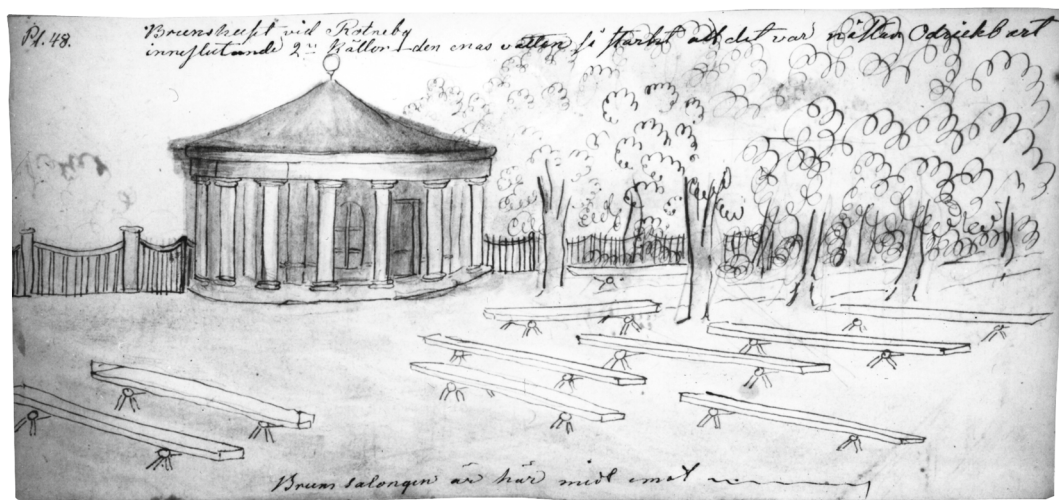 Pl. 48.
Brunshuset vid Rotneby
inneslutande 2:ne Källor – den enas vatten så starkt att det var nästan Odrickbart
Brunssalongen är här midt emot